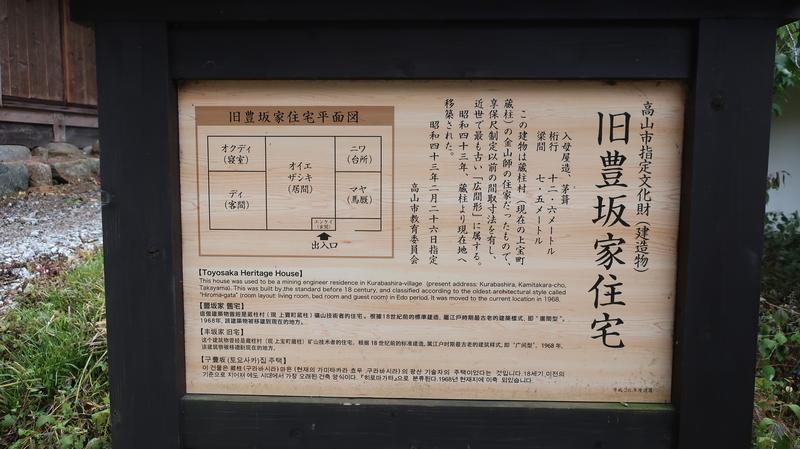 高山市指定文化財（建造物）
旧豊坂家住宅
入母屋造、茅葺
桁行　十二・六メートル
梁間　七・五メートル
この建物は蔵柱村（現在の上宝町
蔵柱）の金山師の住家だったもので、
享保尺制定以前の間取寸法を有し、
近世で最も古い「広間形」に属する。
昭和四十三年、蔵柱より現在地へ
移築された。
昭和四十三年二月二十六日指定
高山市教育委員会
旧豊坂家住宅平面図
オクディ
（寝室）
オイエ
ザシキ
（居間）
ニワ
（台所）
ディ
（客間）
マヤ
（馬厩）
エンケイ
（玄関）
出入口
【Toyosaka Heritage House】
This house was used to be a mining engineer residence in Kurabashira-village (present address: Kurabashira, Kamitakara-cho,
Takayama). This was built by the standard before 18 century, and classified according to the oldest architectural style called
"Hiroma-gata" (room layout: living room, bed room and guest room) in Edo period. It was moved to the current location in 1968.
【豐坂家 舊宅】
這個建築物曾經是藏柱村（現 上寶町藏柱）礦山技術者的住宅。根據18世紀前的標準建造，屬江戶時期最古老的建築樣式，即“廣間型”。
1968年，該建築物被移建到現在的地方。
【丰坂家 旧宅】
这个建筑物曾经是藏柱村（现 上宝町藏柱）矿山技术者的住宅。根据 18 世纪前的标准建造，属江户时期最古老的建筑样式，即“广间型”。1968 年，
该建筑物被移建到现在的地方。
【구豊坂 (토요사카)집 주택】
이 건물은 蔵柱 (구라바시라)마을 (현재의 가미타카라 쵸우 구라바시라) 의 광산 기술자의 주택이었다는 것입니다.18세기 이전의
기준으로 지어져 에도 시대에서 가장 오래된 건축 양식이다. 『히로마가타』으로 분류된다.1968년 현재지에 이축 되었습니다.